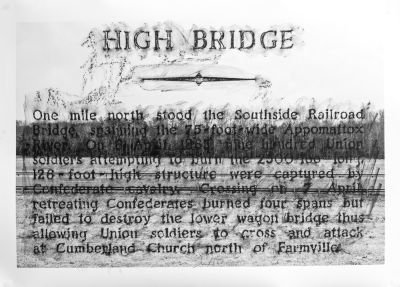 HIGH BRIDGE
One mile north stood the Southside Railroad
Bridge, spanning the 75-foot-wide Appomattox
River. On 6 April 1865 nine hundred Union
soldiers attempting to burn the 2500 foot long,
126-foot-high structure were captured by
Confederate cavalry. Crossing on 7 April
retreating Confederates burned four spans but
failed to destroy the lower wagon bridge thus
allowing Union soldiers to cross and attack
at Cumberland Church north of Farmville.